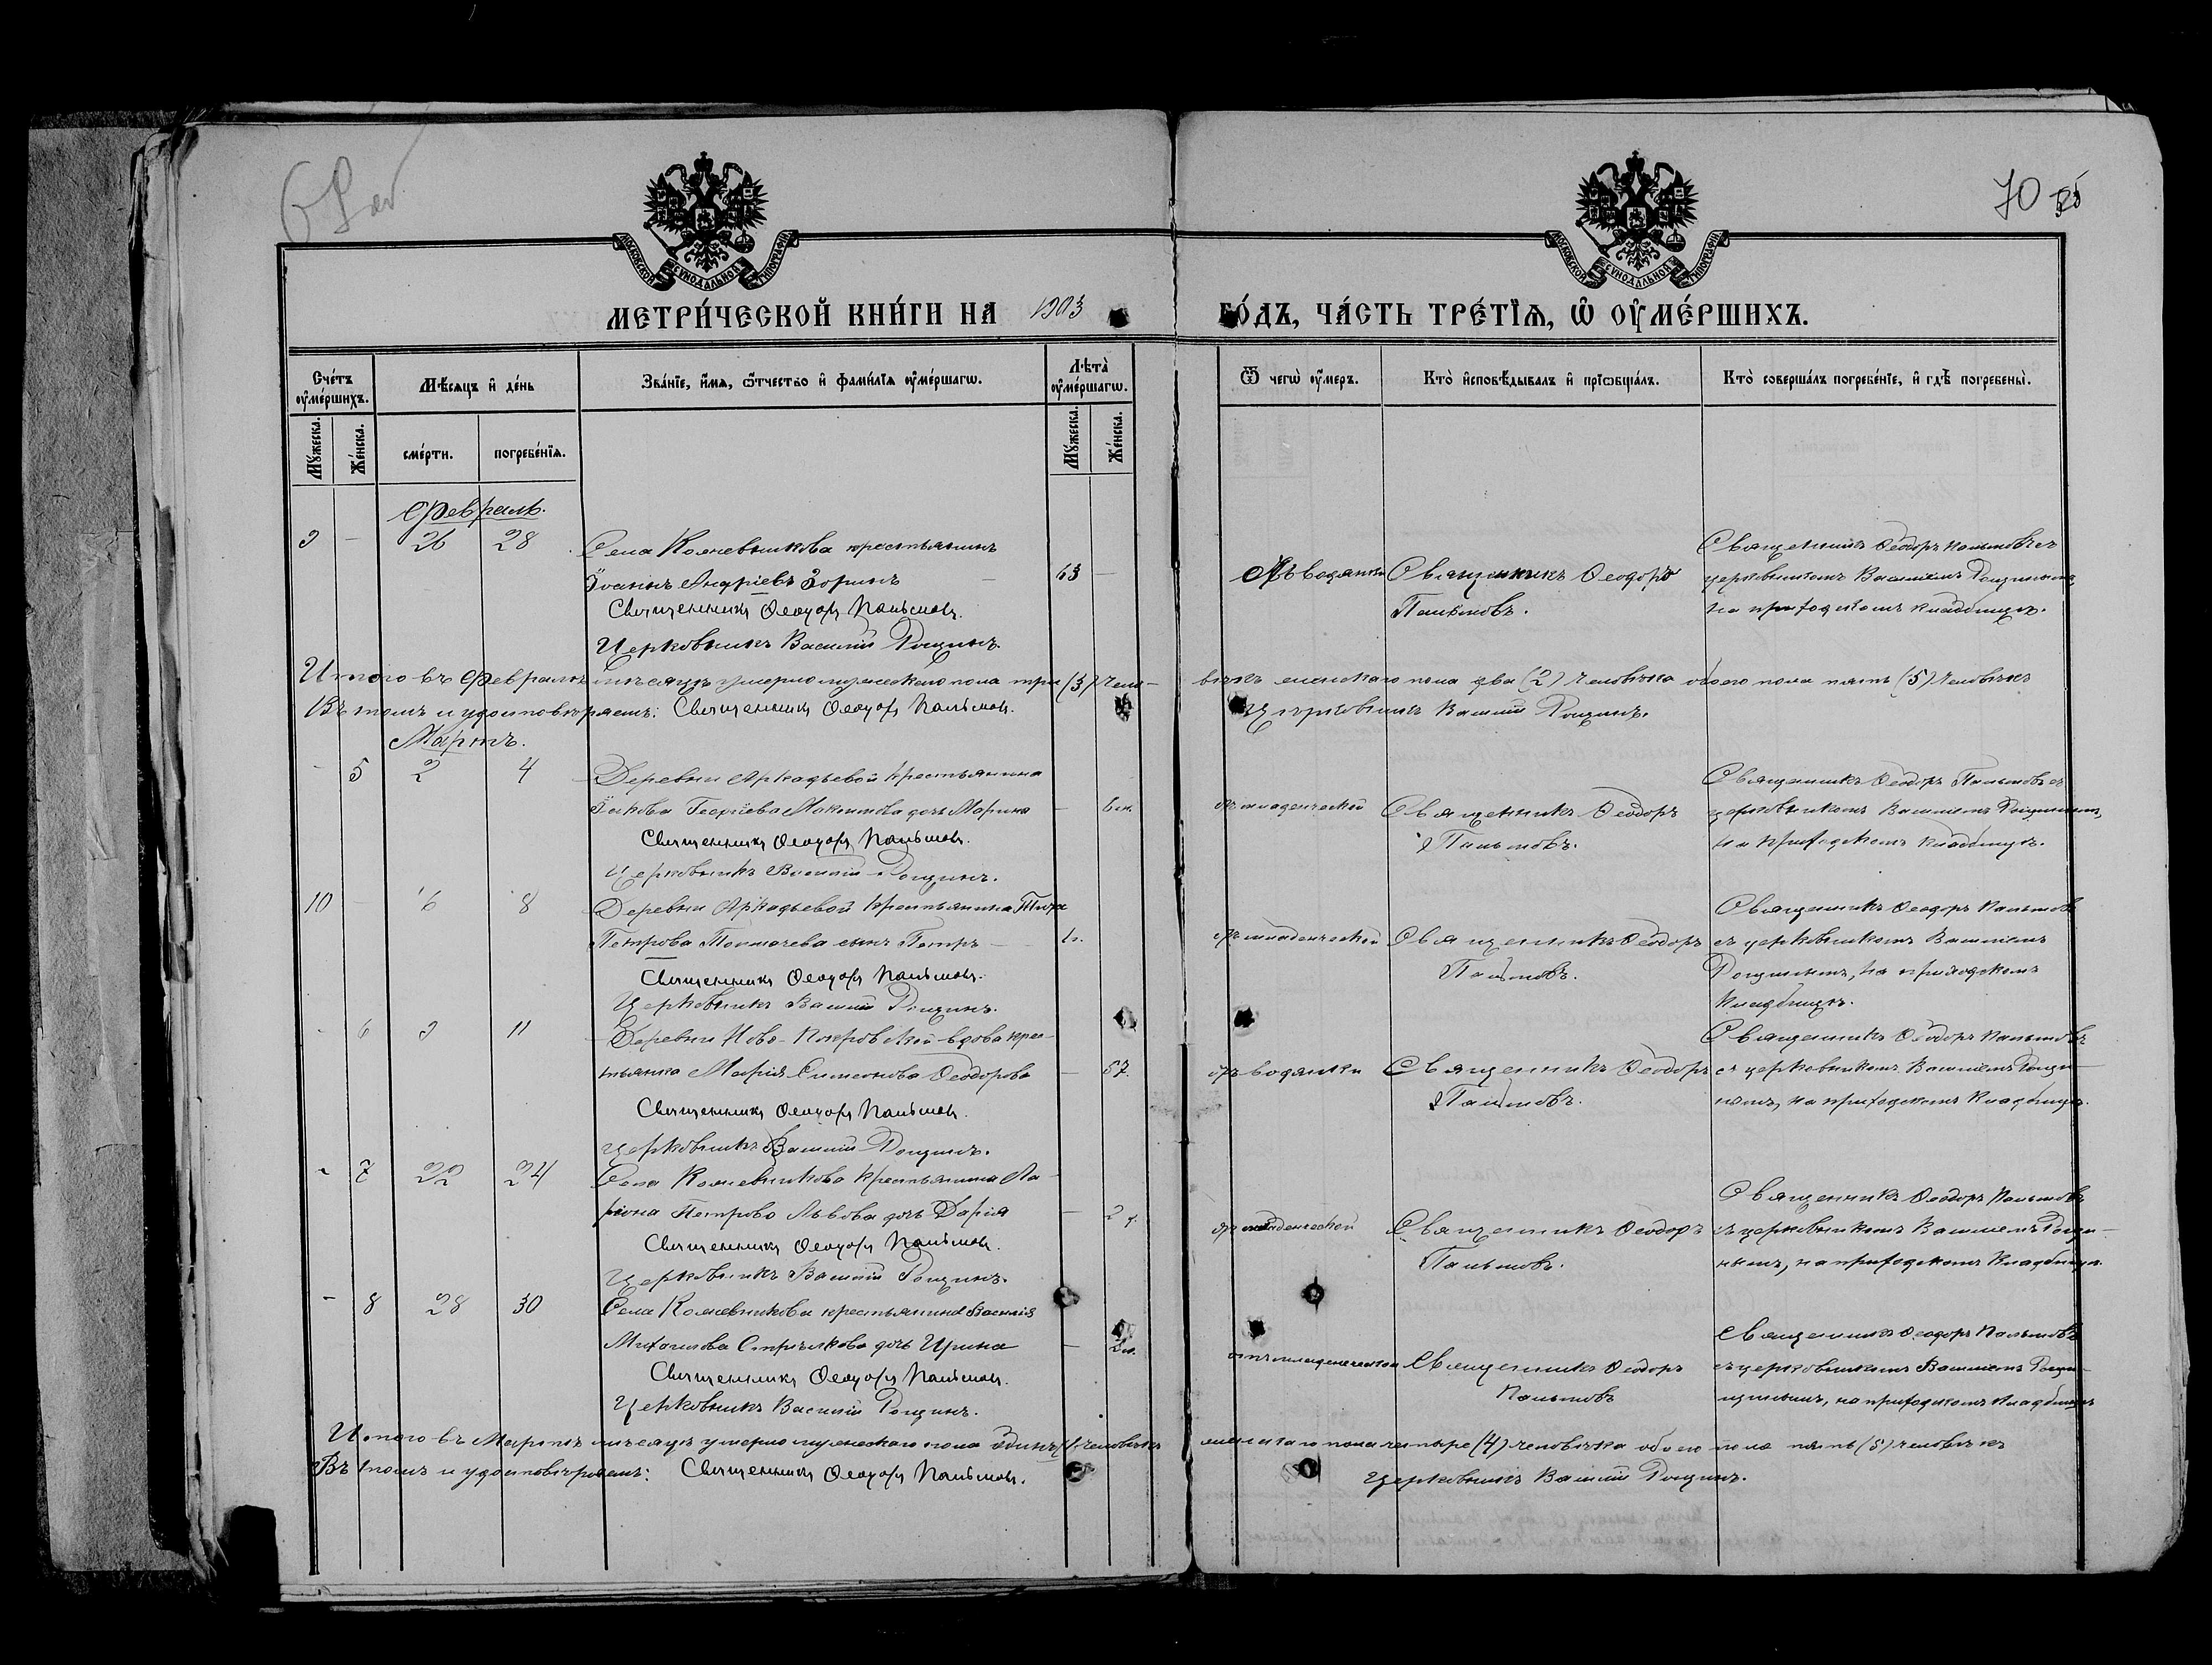 70
МОСКОВСКОЙ СѴНОДАЛЬНОЙ ТИПОГРАФІИ
МОСКОВСКОЙ СѴНОДАЛЬНОЙ ТИПОГРАФІИ
МЕТРИ́ЧЕСКОЙ КНИ́ГИ НА 1903 ГО́ДЪ, ЧА́СТЬ ТРЕ́ТЇѦ, Ѡ҆ ОУ҆МЕ́РШИХЪ.
Сче́тъ оу҆ме́ршихъ.
Мѣ́сяцъ и҆ де́нь
Зва́нїе, и҆́мѧ, ѻ҆́тчество и҆ фами́лїѧ оу҆ме́ршагѡ.
Лѣ̀та оу҆ме́ршагѡ.
Ѿ чегѡ̀ оу҆́меръ.
Кто̀ и҆сповѣ́дывалъ и҆ прїѡбща́лъ.
Кто̀ соверша́лъ погребе́нїе, и҆ гдѣ̀ погребены̀.
Мꙋ́жеска. Же́нска. сме́рти. погребе́нїѧ. Мꙋ́жеска. Же́нска.
Февраль.
9 - 26 28 Села Кожевникова крестьянинъ
Іоаннъ Андріевъ Зоринъ - 63 -
Священникъ Ѳеодоръ Пальмовъ.
Церковникъ Василій Рощинъ.
Отъ водянки
Священникъ Ѳеодоръ
Пальмовъ.
Священникъ Ѳеодоръ Пальмовъ съ
церковникомъ Василіемъ Рощинымъ,
на приходскомъ кладбищѣ.
Итого въ Февралѣ мѣсяцѣ умерло мужескаго пола три (3) чело-
вѣкъ женскаго пола два (2) человѣка обоего пола пять (5) человѣкъ
Въ томъ и удостовѣряемъ: Священникъ Ѳеодоръ Пальмовъ.
Церковникъ Василій Рощинъ.
Мартъ.
- 5 2 4 Деревни Аркадьевой крестьянина
Іакова Георгіева Максимова дочь Марина - 6 м.
Священникъ Ѳеодоръ Пальмовъ.
Церковникъ Василій Рощинъ.
отъ младенческой
Священникъ Ѳеодоръ
Пальмовъ.
Священникъ Ѳеодоръ Пальмовъ съ
церковникомъ Василіемъ Рощинымъ,
на приходскомъ кладбищѣ.
10 - 6 8 Деревни Аркадьевой крестьянина
Петрова Толмачева сынъ Петръ -
Священникъ Ѳеодоръ Пальмовъ.
Церковникъ Василій Рощинъ.
отъ младенческой
Священникъ Ѳеодоръ
Пальмовъ.
Священникъ Ѳеодоръ Пальмовъ
съ церковникомъ Василіемъ
Рощинымъ, на приходскомъ
кладбищѣ.
- 6 9 11 Деревни Ново-Покровской вдова крес-
тьянка Марія Симеонова Ѳеодорова - 57.
Священникъ Ѳеодоръ Пальмовъ.
Церковникъ Василій Рощинъ.
отъ водянки
Священникъ Ѳеодоръ
Пальмовъ.
Священникъ Ѳеодоръ Пальмовъ
съ церковникомъ Василіемъ Рощи-
нымъ, на приходскомъ кладбищѣ.
- 7 22 24 Села Кожевникова крестьянина Ла-
ріона Петрова Львова дочь Дарія - 2
Священникъ Ѳеодоръ Пальмовъ.
Церковникъ Василій Рощинъ.
отъ младенческой
Священникъ Ѳеодоръ
Пальмовъ.
Священникъ Ѳеодоръ Пальмовъ
съ церковникомъ Василіемъ Рощи-
нымъ, на приходскомъ кладбищѣ.
- 8 28 30 Села Кожевникова крестьянина Василія
Михаилова Стрѣлкова дочь Ирина -
Священникъ Ѳеодоръ Пальмовъ.
Церковникъ Василій Рощинъ.
отъ младенческой
Священникъ Ѳеодоръ
Пальмовъ
Священникъ Ѳеодоръ Пальмовъ
съ церковникомъ Василіемъ Рощи-
щинымъ, на приходскомъ кладбищѣ
Итого въ Мартѣ мѣсяцѣ умерло мужескаго пола одинъ (1) человѣкъ
женскаго пола четыре (4) человѣка обоего пола пять (5) человѣкъ
Въ томъ и удостовѣряемъ: Священникъ Ѳеодоръ Пальмовъ.
Церковникъ Василій Рощинъ.